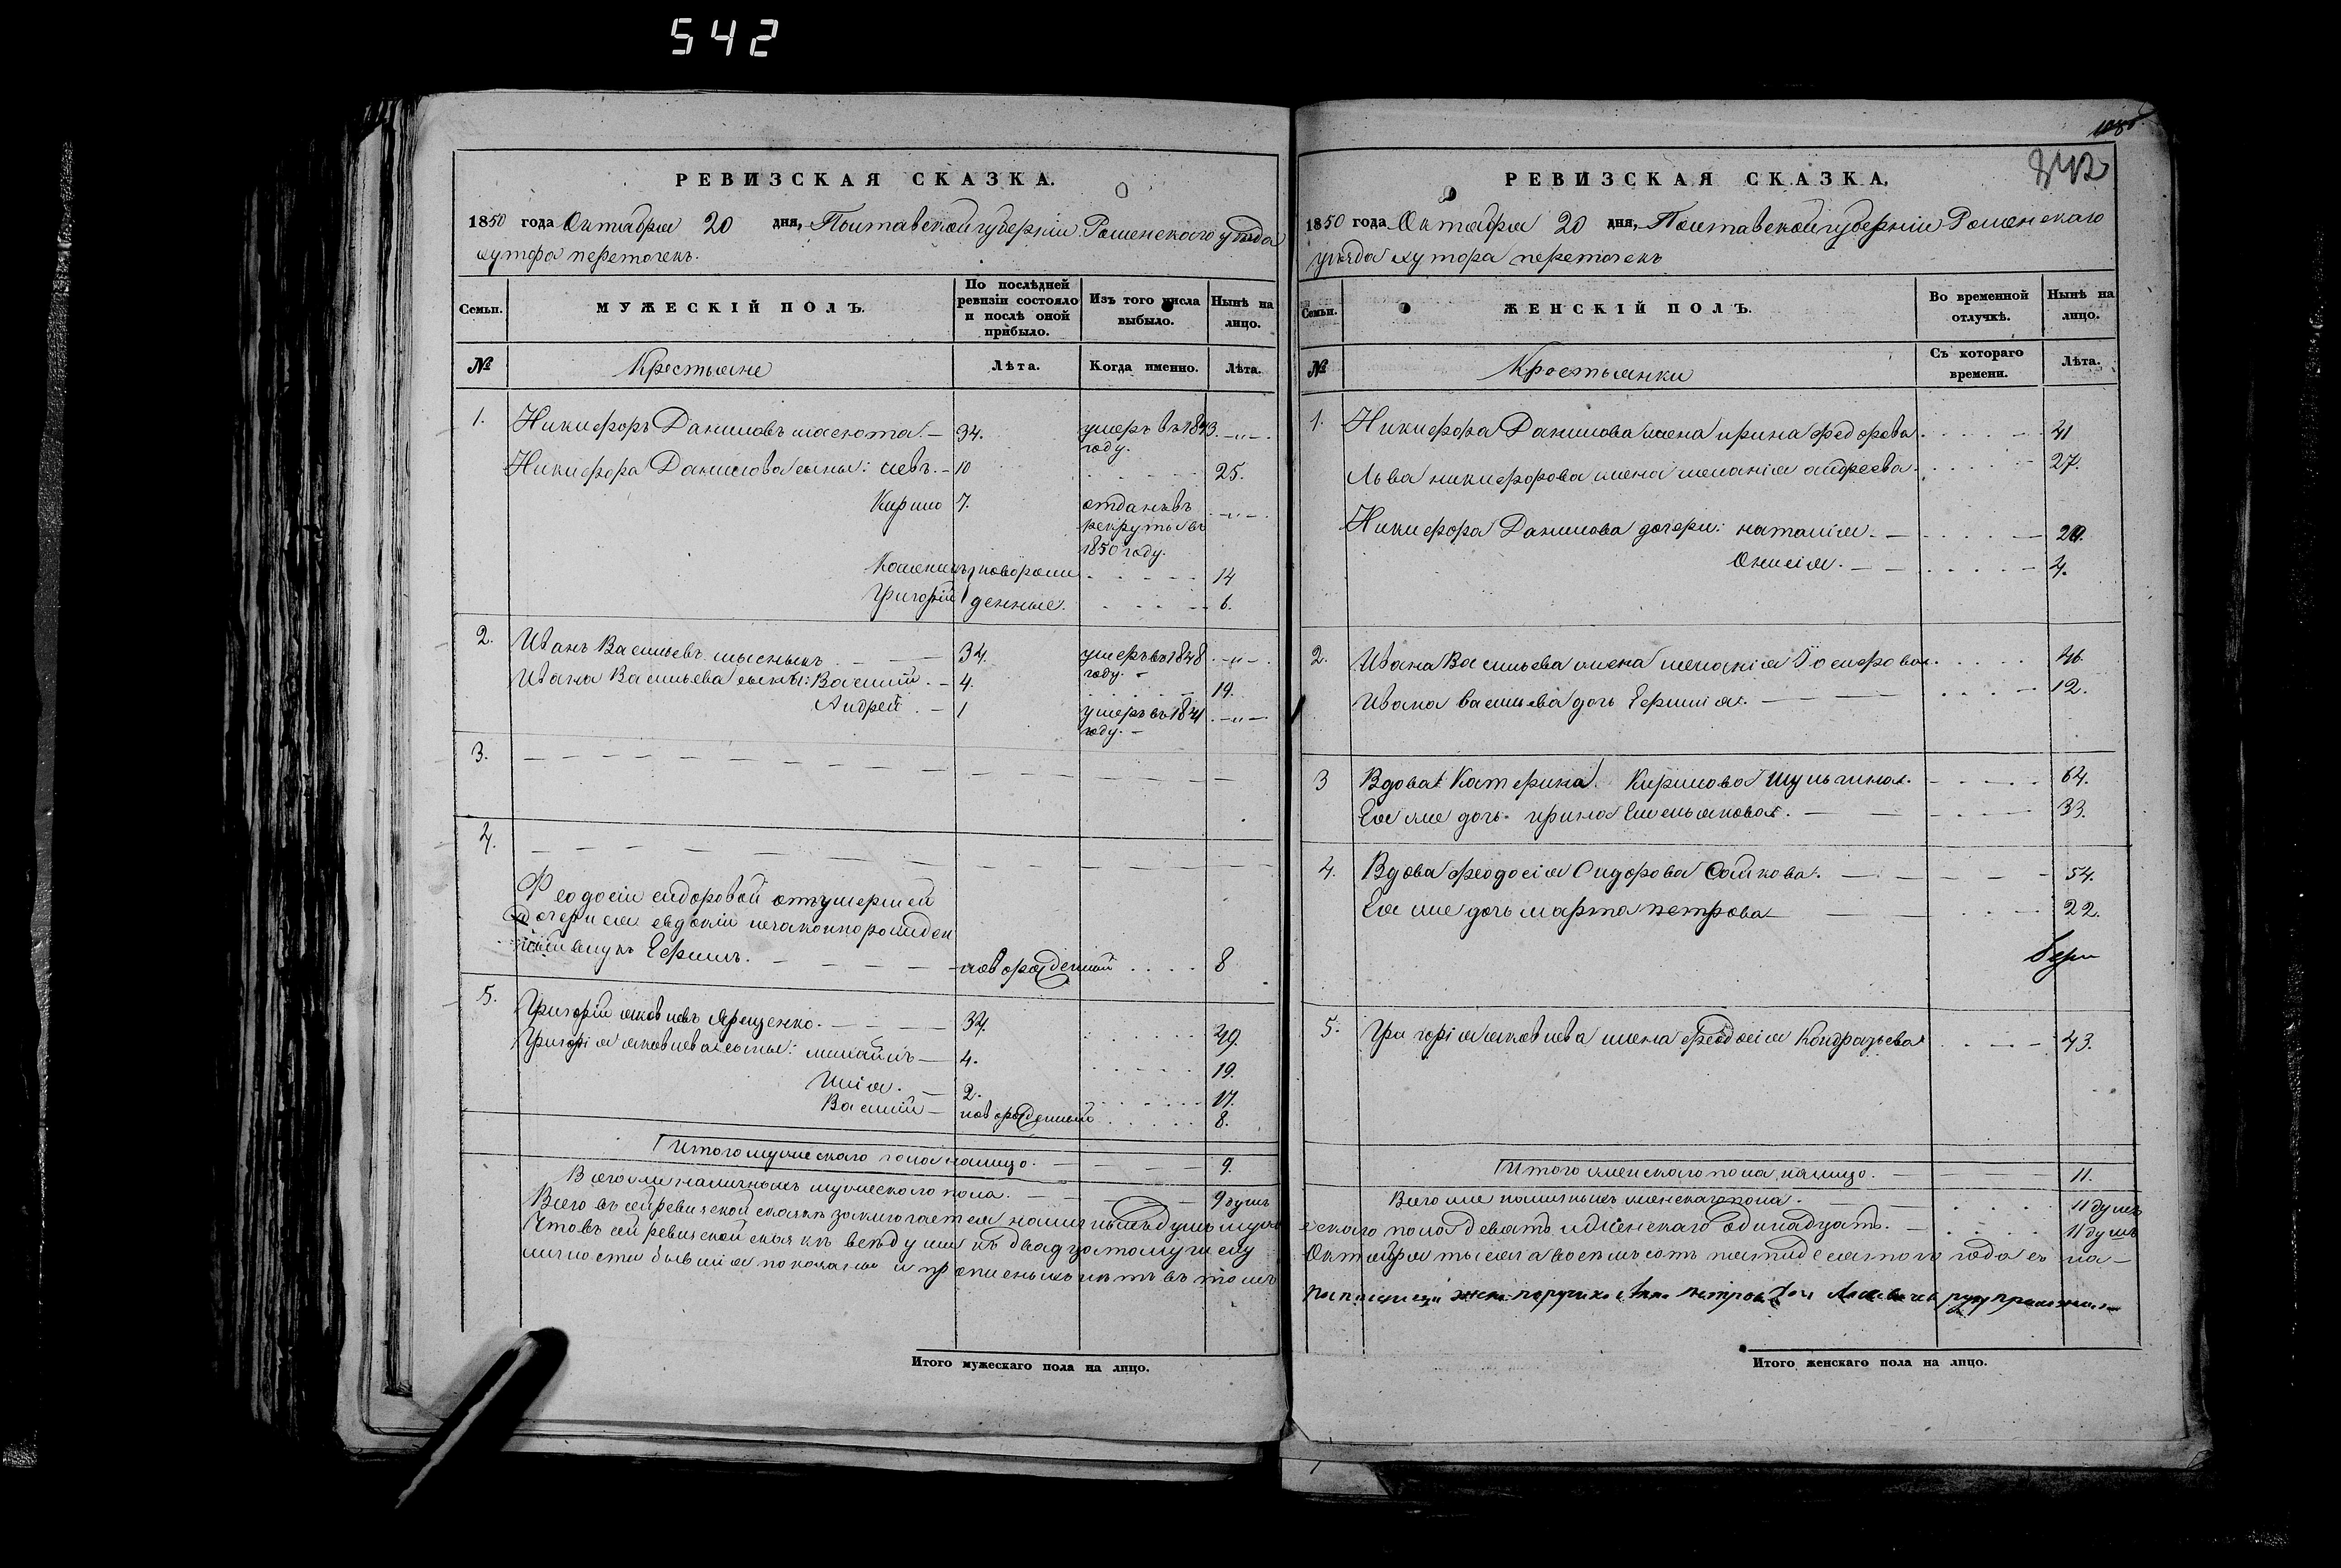 542
РЕВИЗСКАЯ СКАЗКА.
1850 года Октября 20 дня, Полтавской губерніи Роменского уѣзда
хутора переточекъ.
Семьи.
МУЖЕСКІЙ ПОЛЪ.
По послѣдней ревизіи состояло и послѣ оной прибыло.
Изъ того числа выбыло.
Нынѣ на лицо.
№
Крестьяне
Лѣта.
Когда именно.
Лѣта.
1. Никифоръ Даниловъ масюта. 34. умеръ въ 1843 году. —„—
Никифора Данилова сыны: левъ. 10 25.
Кирило 7. отданъ въ рекруты въ 1850 году. —„—
новорож
Григорій денные. 6.
14
2. Иванъ Васильевъ 34. умеръ въ 1848 году. —„—
Ивана Васильева сыны: Василій. 4. 14.
Андрей 1 умеръ въ 1841 году. —„—
3.
4.
Феодосіи сидоровой отъ умершей
дочери ея евдокіи незаконнорожден
ный внукъ Ефимъ. новорожденный 8
5. Григорій яковлевъ Ярещенко. 34. 49.
Григорія яковлева сыны: михайлъ 4. 19.
Илія. 2. 17.
Василій новорожденный 8.
Итого мужескаго пола налицо. 9.
Всего же наличныхъ мужескаго пола. 9 душъ
Всего въ сей ревизской сказкѣ заключается наличныхъ душъ муж
Что въ сей ревизской сказкѣ всѣ души къ двадцатому числу
личности бывшія показаны и прописныхъ нѣтъ въ томъ
Итого мужескаго пола на лицо.
342
РЕВИЗСКАЯ СКАЗКА.
1850 года Октября 20 дня, Полтавской губерніи Роменскаго
уѣзда хутора переточекъ
Семьи.
ЖЕНСКІЙ ПОЛЪ.
Во временной отлучкѣ.
Нынѣ на лицо.
№
Крестьянки
Съ котораго времени.
Лѣта.
1. Никифора Данилова жена ирина федорова. 41
Льва никифорова жена меланія андреева. 27.
Никифора Данилова дочери: наталія.
Онисія. 4.
2. Ивана Васильева жена меланія Іосифова. 46.
Ивана васильева дочь Ефимія. 12.
3 Вдова Катерина Кирилова Шульгина. 64.
Ея же дочь ирина Емельянова. 33.
4. Вдова феодосія Сидорова 54.
Ея же дочь марта петрова 22.
5. Григорія яковлева жена феодосія Кондратьева 43.
Итого женскаго пола налицо. 11.
Всего же наличныхъ женскаго пола. 11 душъ
ескаго пола девять и женскаго одинадцать. 11 душъ
Октября тысяча восемьсотъ пятидесятого года съ на-
жена поручика Анна петрова руку приложила
Итого женскаго пола на лицо.